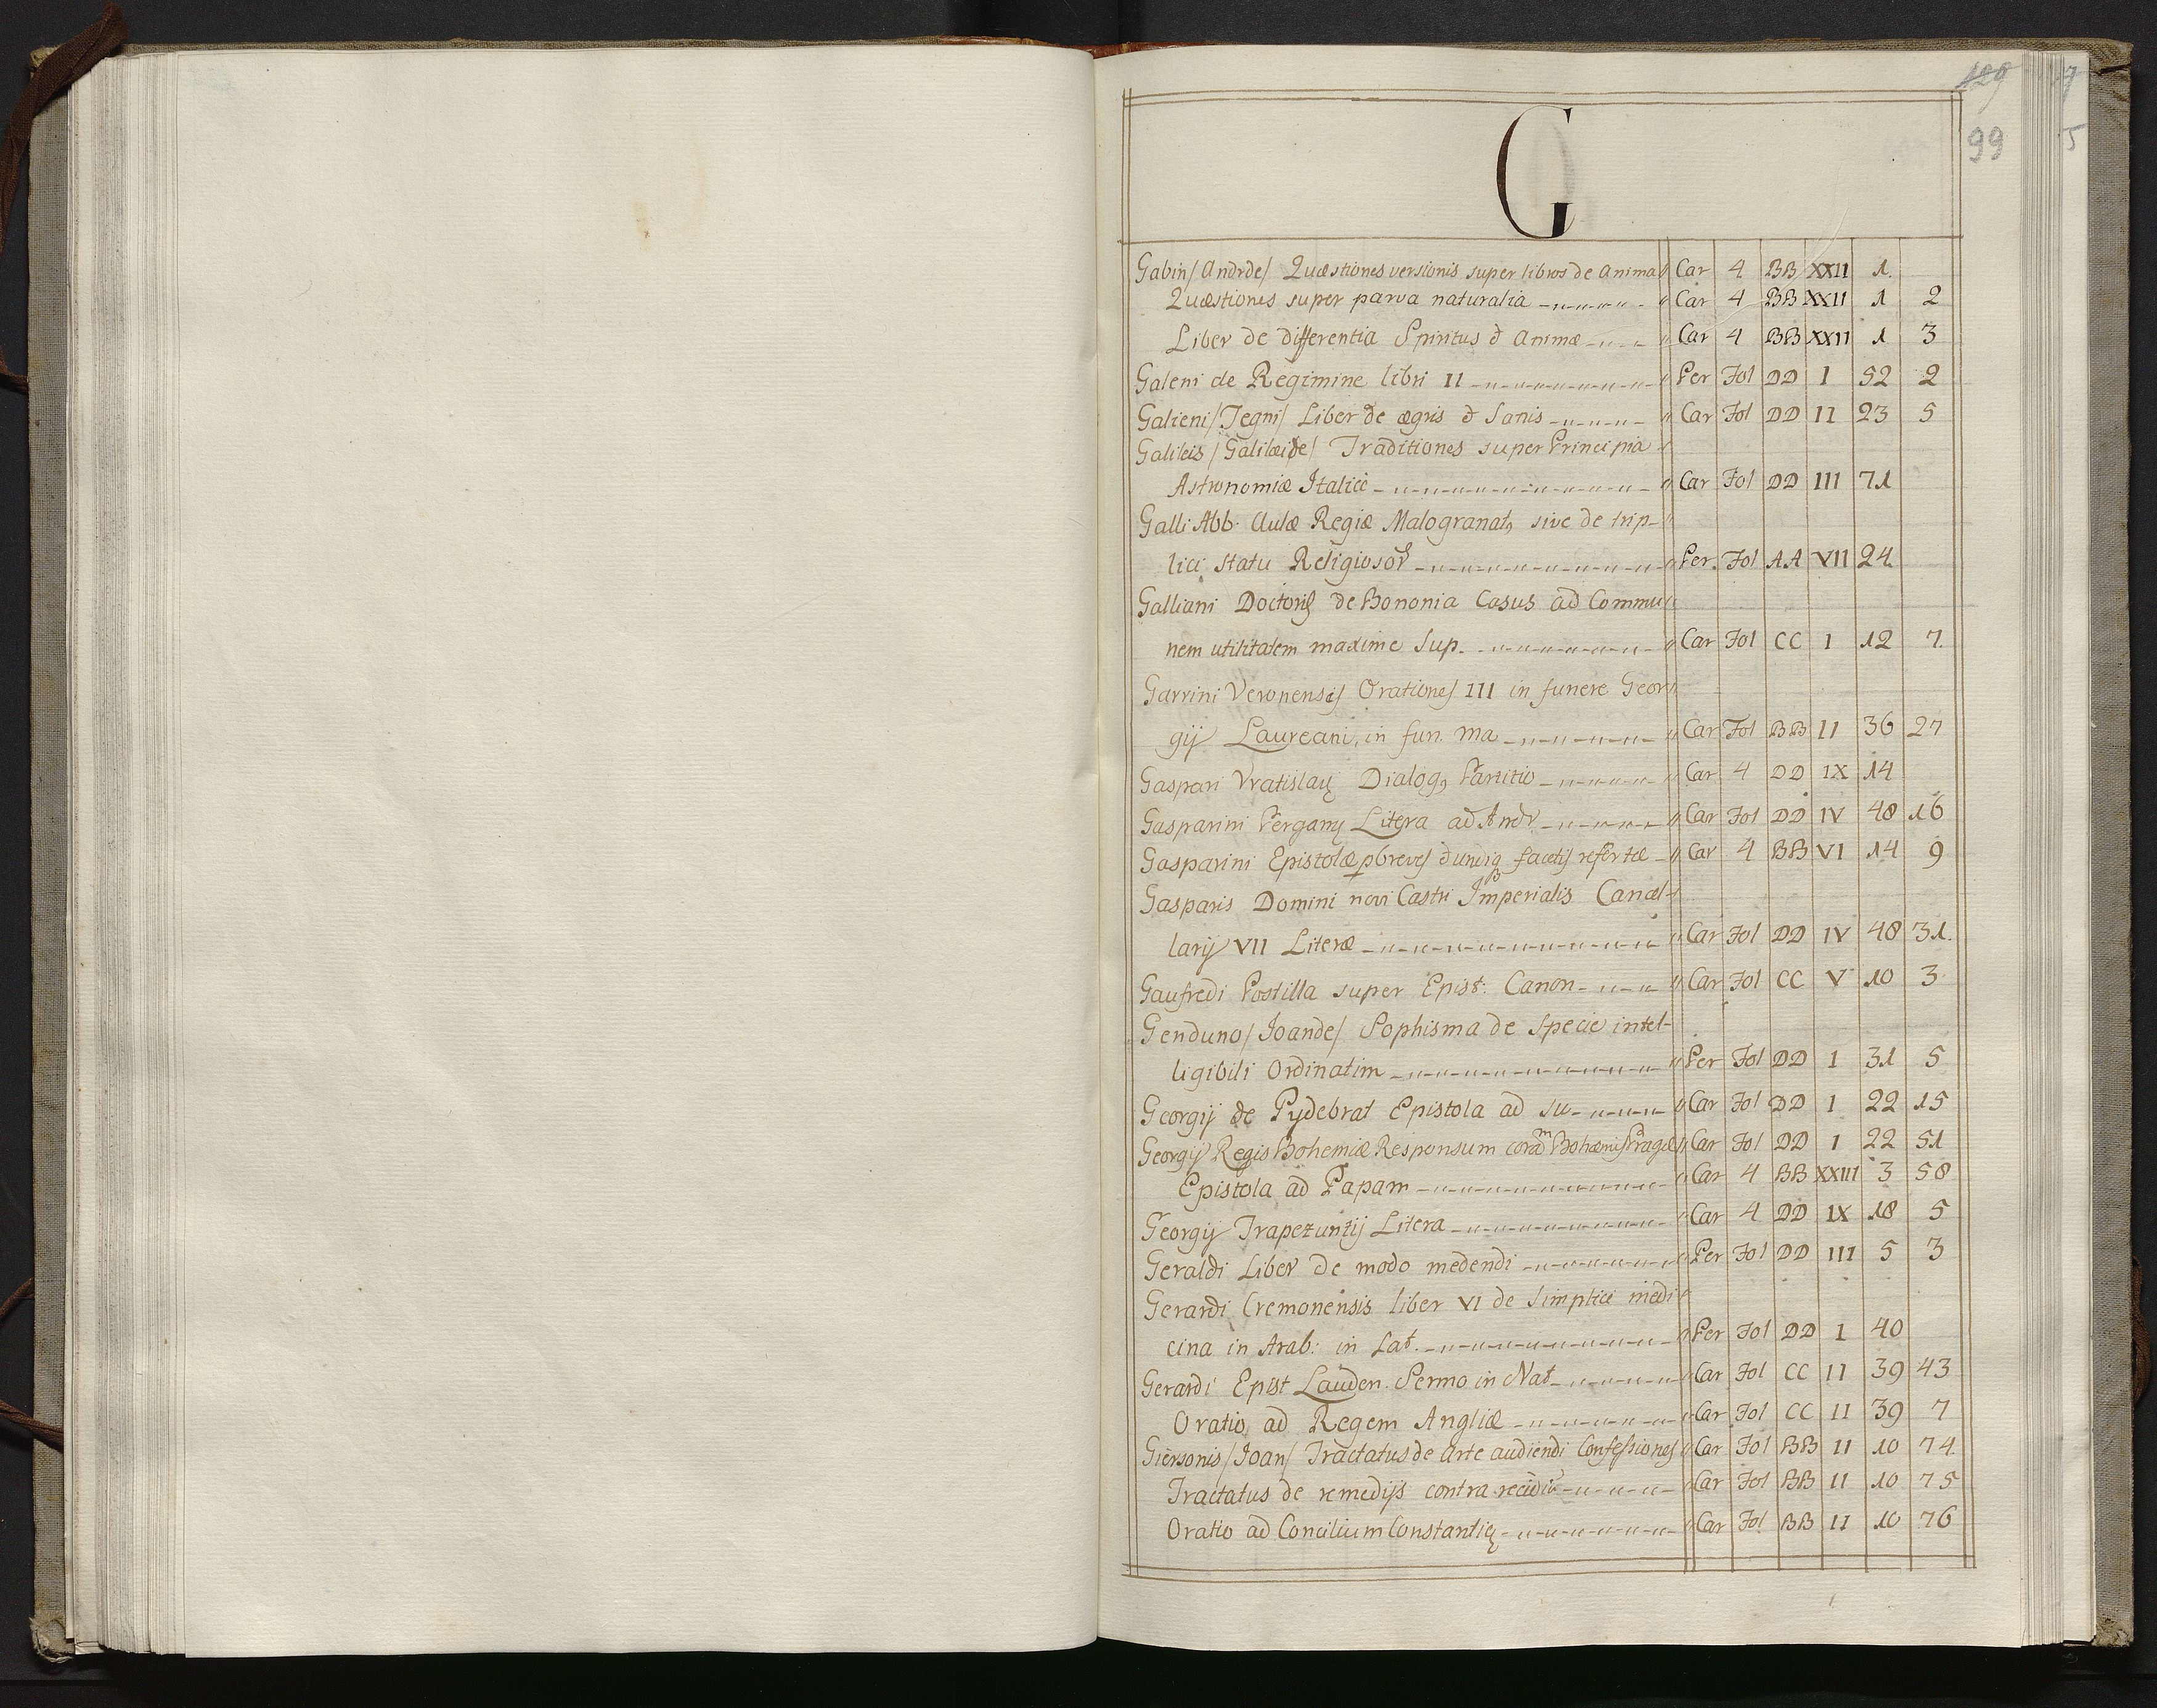 129
99
G
Gabin/Andrde/ Quæstiones versionis super libros de Anima Car 4 BB XXII 1.
Quæstiones super parva naturalia Car 4 BB XXII 1 2
Liber de differentia Spiritus & Animæ Car 4 BB XXII 1 3
Galeni de Regimine libri II Per Fol DD I 52 2
Galieni/Tegni/ Liber de ægris & Sanis Car Fol DD II 23 5
Galileis/Galilæide/ Traditiones super Principia
Astronomiæ Italice Car Fol DD III 71
Galli Abb. Aulæ Regiæ Malogranat, sive de trip-
lici statu Religiosor Per. Fol AA VII 24
Galliani Doctoris de Bononia Casus ad Commu
nem utilitatem maxime Sup. Car Fol CC I 12 7.
Garrini Veronensis Orationes III in funere Geor
gij Laureani, in fun. ma Car Fol BB II 36 27
Gaspari Vratislaw Dialog, Partitio Car 4 DD IX 14
Gasparini Pergamy Litera ad Andr Car Fol DD IV 48 16
Gasparini Epistolæ pbreves & undiq facetijs refertæ Car 4 BB VI 14 9
Gasparis Domini novi Castri Imperialis Cancel-
larij VII Literæ Car Fol DD IV 48 31.
Gaufredi Postilla super Epist: Canon Car Fol CC V 10 3
Genduno/Joande/ Sophisma de Specie intel-
ligibili Ordinatim Per Fol DD I 31 5
Georgij de Pydebrat Epistola ad su Car Fol DD I 22 15
Georgij Regis Bohemiæ Responsum coram Bohæmis Pragæ Car Fol DD I 22 51
Epistola ad Papam Car 4 BB XXIII 3 58
Georgij Trapezuntij Litera Car 4 DD IX 18 5
Geraldi Liber de modo medendi Per Fol DD III 5 3
Gerardi Cremonensis liber VI de Simplici medi
cina in Arab: in Lat. Per Fol DD I 40
Gerardi Epist Lauden. Sermo in Nat Car Fol CC II 39 43
Oratio ad Regem Angliæ Car Fol CC II 39 7
Giersonis/Joan/ Tractatus de Arte audiendi Confessiones Car Fol BB II 10 74.
Tractatus de remedijs contra recidiv Car Fol BB II 10 75
Oratio ad Concilium Constantię Car Fol BB II 10 76